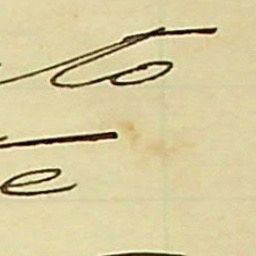 to
e